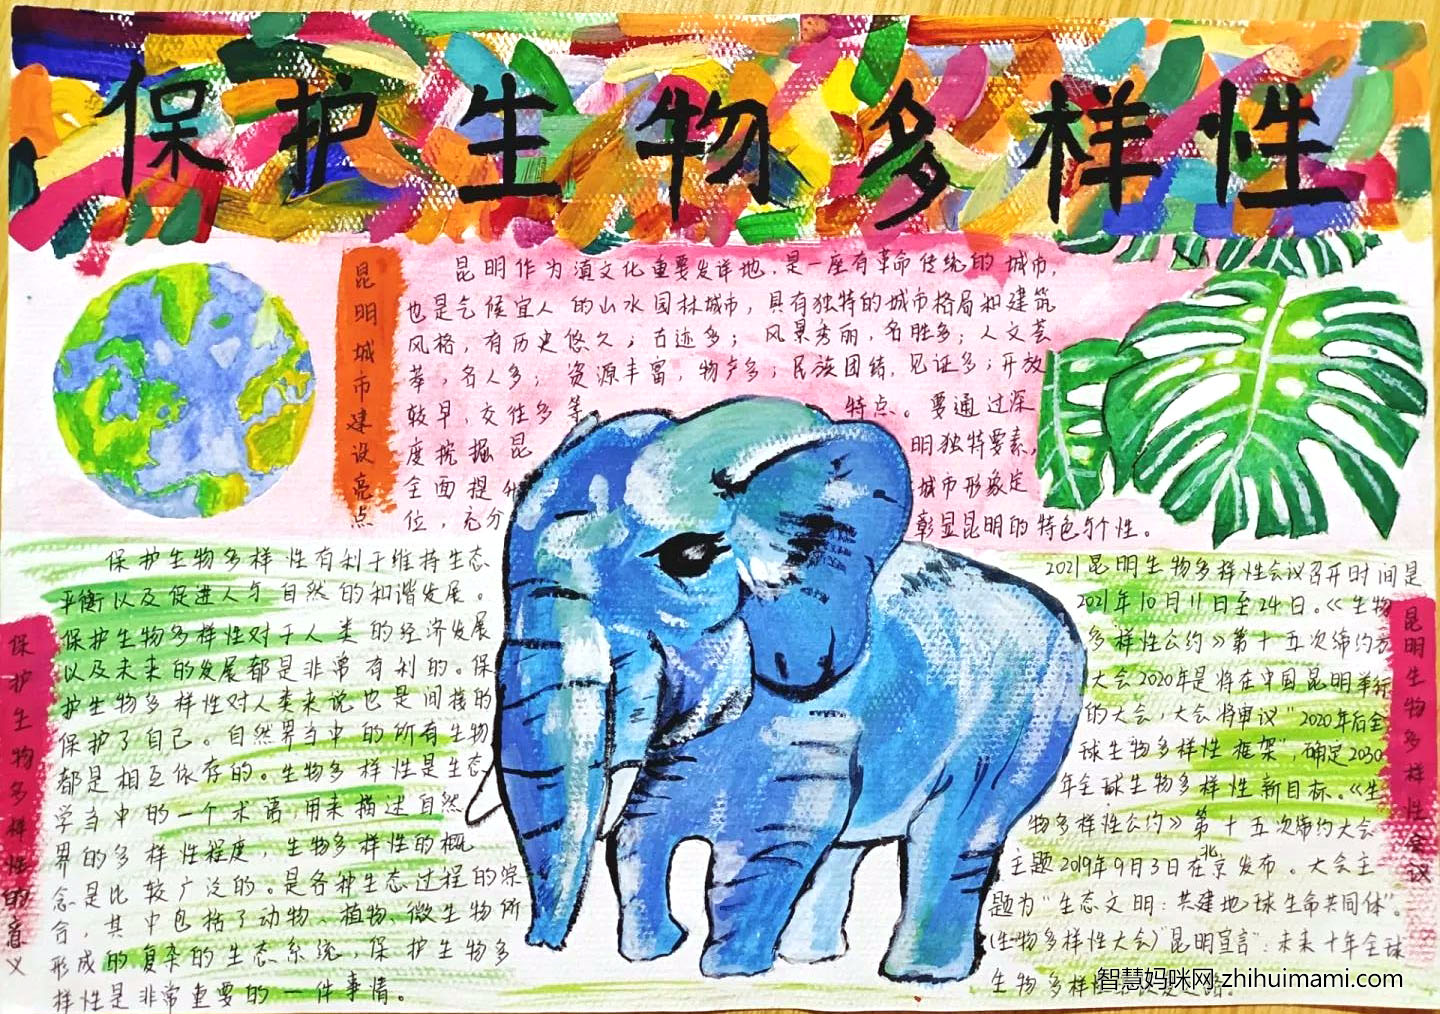 保护生物多样性
昆明城市建设亮点
昆明作为滇文化重要发详地,是一座有革命传统的城市,
也是气候宜人的山水园林城市,具有独特的城市格局和建筑
风格,有历史悠久,古迹多;风景秀丽,名胜多;人文荟
萃,名人多;资源丰富,物产多;民族团结,见证多;开放
较早,交往多等特点。要通过深
度挖掘昆明独特要素,
全面提升城市形象定
位,充分彰显昆明的特色与个性。
保护生物多样性的意义
保护生物多样性有利于维持生态
平衡以及促进人与自然的和谐发展。
保护生物多样性对于人类的经济发展
以及未来的发展都是非常有利的。保
护生物多样性对人类来说也是间接的
保护了自己。自然界当中的所有生物
都是相互依存的。生物多样性是生态
学当中的一个术语,用来描述自然
界的多样性程度,生物多样性的概
念是比较广泛的。是各种生态过程的综
合,其中包括了动物、植物、微生物所
形成的复杂的生态系统,保护生物多
样性是非常重要的一件事情。
昆明生物多样性会议
2021昆明生物多样性会议召开时间是
2021年10月11日至24日。《生物
多样性公约》第十五次缔约方
大会2020年是将在中国昆明举行
的大会,大会将审议"2020年后全
球生物多样性框架",确定2030
年全球生物多样性新目标。《生
物多样性公约》第十五次缔约大会
主题2019年9月3日在北京发布。大会主
题为"生态文明:共建地球生命共同体"。
(生物多样性大会)"昆明宣言":未来十年全球
生物多样性
智慧妈咪网 zhihuimami.com